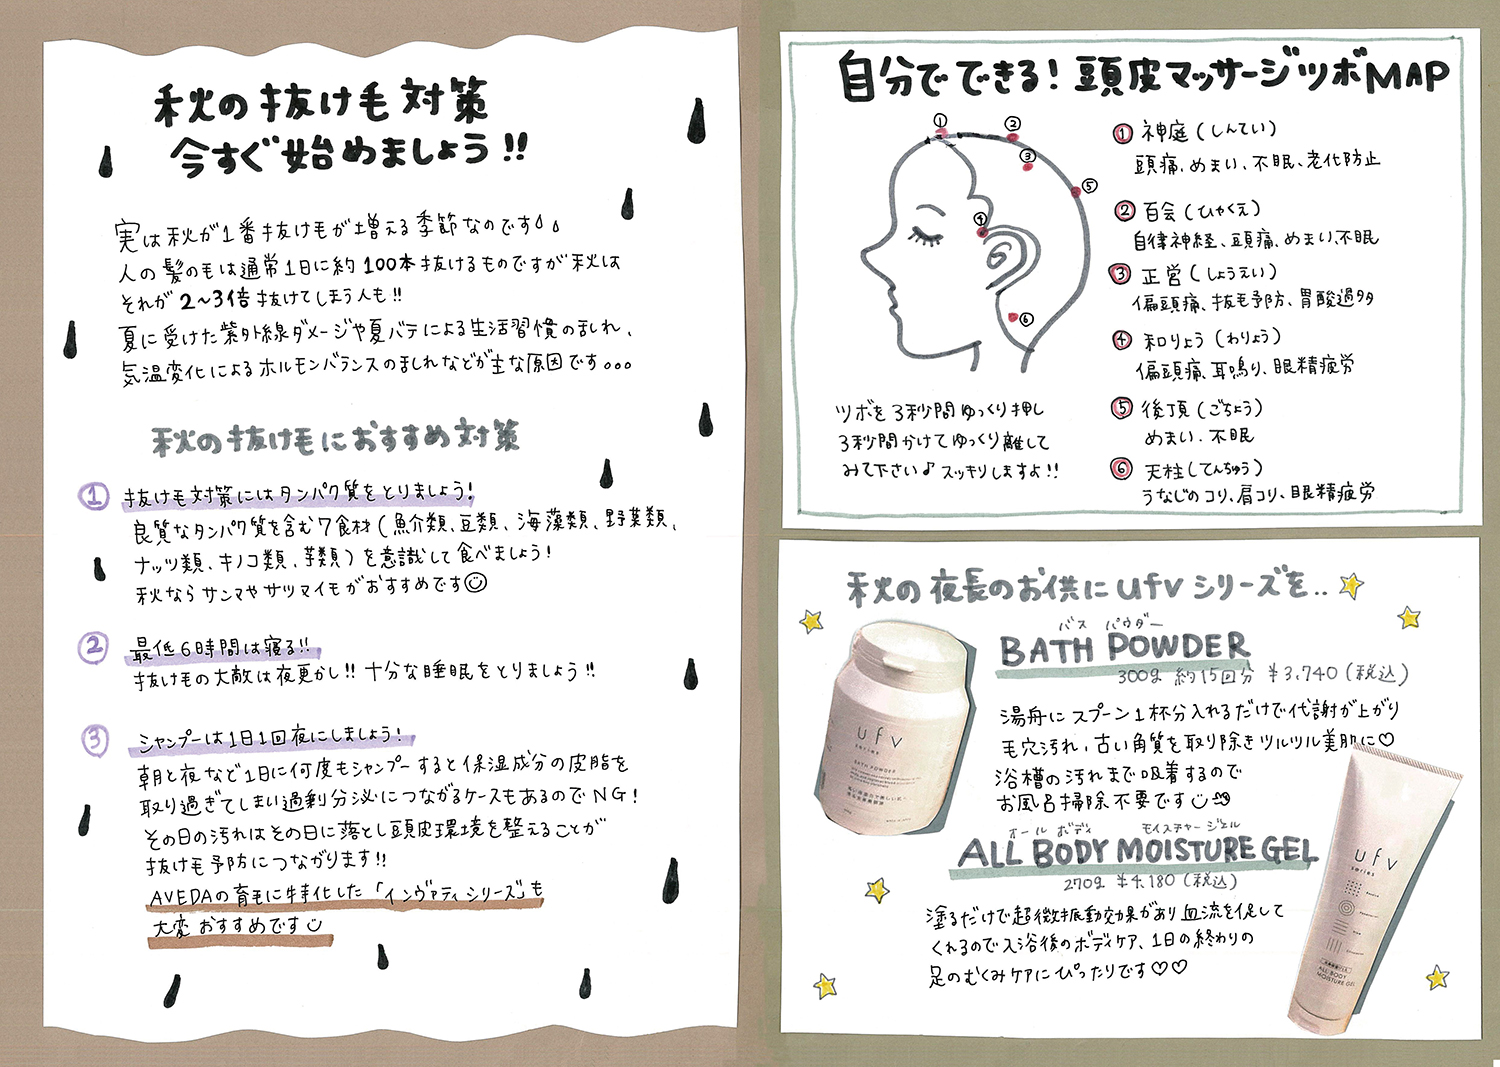 秋の抜け毛対策
今すぐ始めましょう!!
実は秋が1番抜け毛が増える季節なのです
人の髪の毛は通常1日に約100本抜けるものですが秋は
それが2〜3倍抜けてしまう人も!!
夏に受けた紫外線ダメージや夏バテによる生活習慣の乱れ、
気温変化によるホルモンバランスの乱れなどが主な原因です。。。
秋の抜け毛におすすめ対策
① 抜け毛対策にはタンパク質をとりましょう!
良質なタンパク質を含む7食材(魚介類、豆類、海藻類、野菜類、
ナッツ類、キノコ類、芋類)を意識して食べましょう!
秋ならサンマやサツマイモがおすすめです
② 最低6時間は寝る!!
抜け毛の大敵は夜更かし!!十分な睡眠をとりましょう!!
③ シャンプーは1日1回夜にしましょう!
朝と夜など1日に何度もシャンプーすると保湿成分の皮脂を
取り過ぎてしまい過剰分泌につながるケースもあるのでNG!
その日の汚れはその日に落とし頭皮環境を整えることが
抜け毛予防につながります!!
AVEDAの育毛に特化した「インヴァティシリーズ」も
大変おすすめです
自分でできる!頭皮マッサージツボMAP
①
②
③
④
⑤
⑥
① 神庭(しんてい)
頭痛、めまい、不眠、老化防止
② 百会(ひゃくえ)
自律神経、頭痛、めまい、不眠
③ 正営(しょうえい)
偏頭痛、抜毛予防、胃酸過多
④ 和りょう(わりょう)
偏頭痛、耳鳴り、眼精疲労
⑤ 後頂(ごちょう)
めまい、不眠
⑥ 天柱(てんちゅう)
うなじのコリ、肩コリ、眼精疲労
ツボを3秒間ゆっくり押し
3秒間かけてゆっくり離して
みて下さい♪スッキリしますよ!!
秋の夜長のお供にufvシリーズを..
バス パウダー
BATH POWDER
300g 約15回分 ¥3,740(税込)
湯舟にスプーン1杯分入れるだけで代謝が上がり
毛穴汚れ、古い角質を取り除きツルツル美肌に♡
浴槽の汚れまで吸着するので
お風呂掃除不要です
オール ボディ モイスチャー ジェル
ALL BODY MOISTURE GEL
270g ¥4,180(税込)
塗るだけで超微振動効果があり血流を促して
くれるので入浴後のボディケア、1日の終わりの
足のむくみケアにぴったりです♡♡
ufv
series
BATH POWDER
ufv
series
ALL BODY
MOISTURE GEL